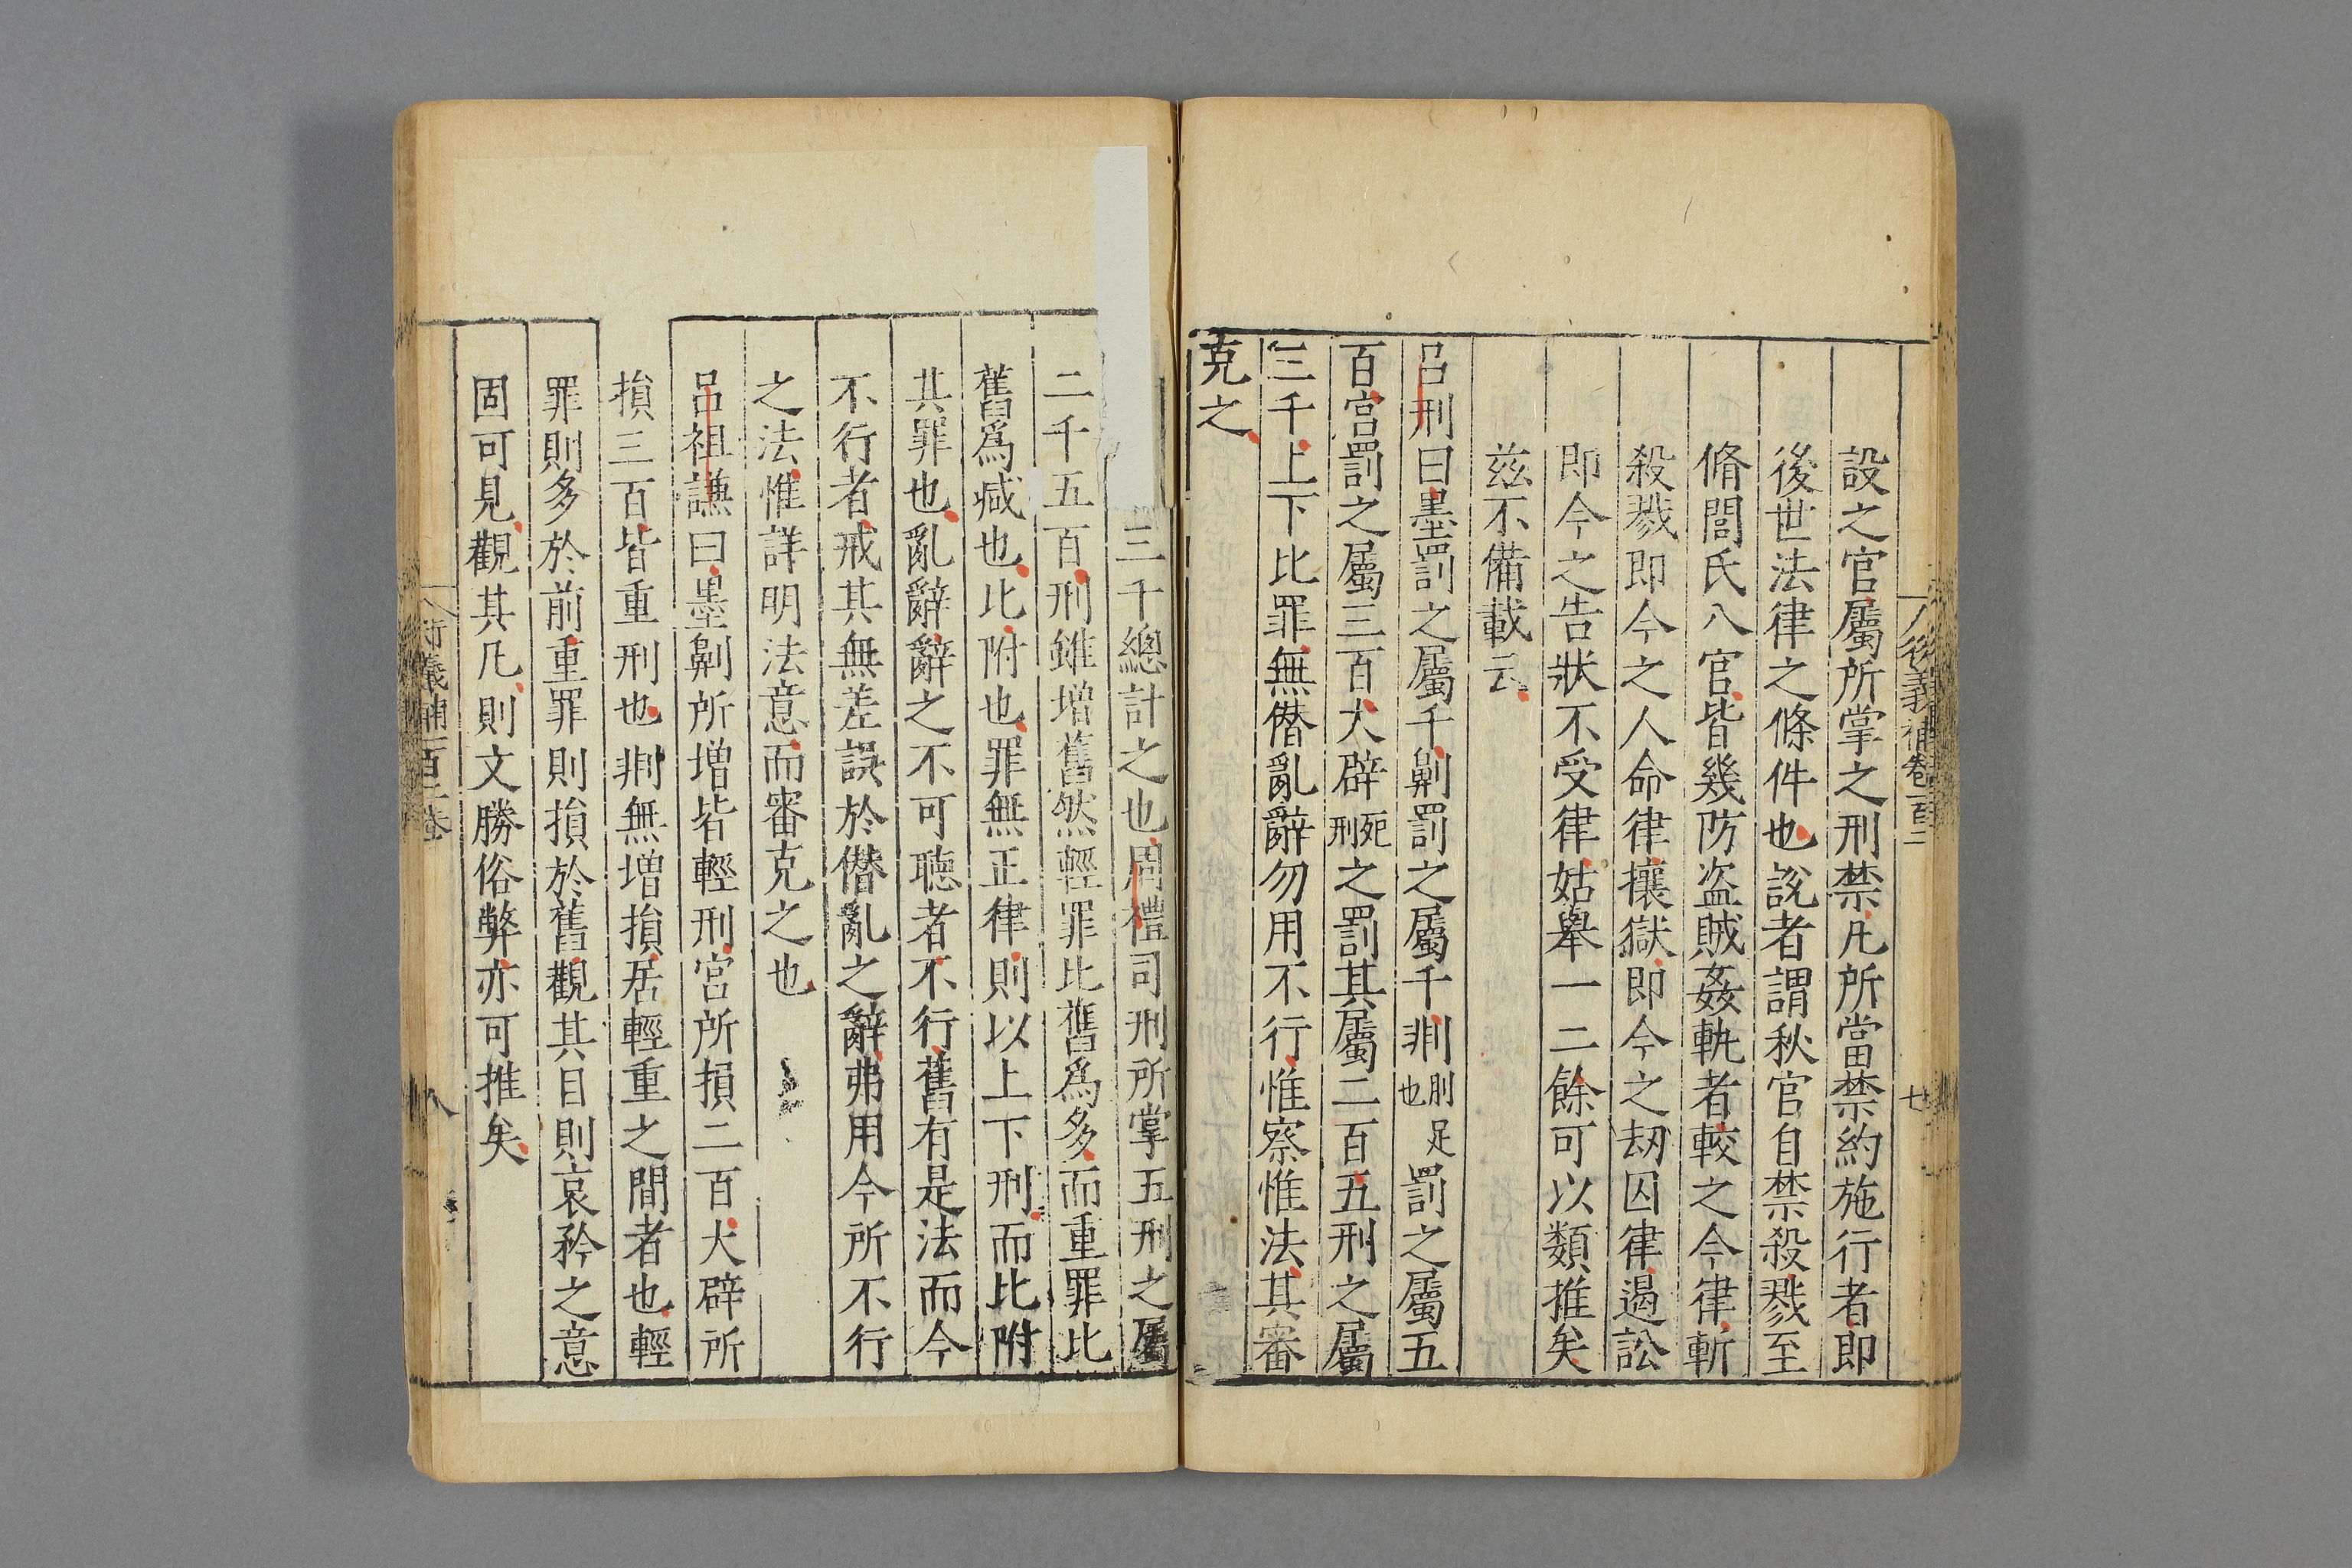 後義補卷百二
廿
設之官屬所掌之刑禁凡所當禁約施行者即
後世法律之條件也說者謂秋官自禁殺戮至
脩閭氏八官皆幾防盗賊姦軌者較之今律斬
殺戮即今之人命律攘獄即今之刼囚律遏訟
即今之告狀不受律姑舉一二餘可以類推矣
兹不備載云
呂刑曰墨罰之屬千劓罰之屬千剕刖足也罰之屬五
百宮罰之屬三百大辟死刑之罰其屬二百五刑之屬
三千上下比罪無僭亂辭勿用不行惟察惟法其審
克之
三千總計之也周禮司刑所掌五刑之屬
二千五百刑雖增舊然輕罪比舊爲多而重罪比
舊爲減也比附也罪無正律則以上下刑而比附
其罪也亂辭辭之不可聴者不行舊有是法而今
不行者戒其無差誤於僭亂之辭弗用今所不行
之法惟詳明法意而審克之也
呂祖謙曰墨劓所增皆輕刑宮所損二百大辟所
損三百皆重刑也剕無增損居輕重之間者也輕
罪則多於前重罪則損於舊觀其目則哀矜之意
固可見觀其凡則文勝俗弊亦可推矣
八